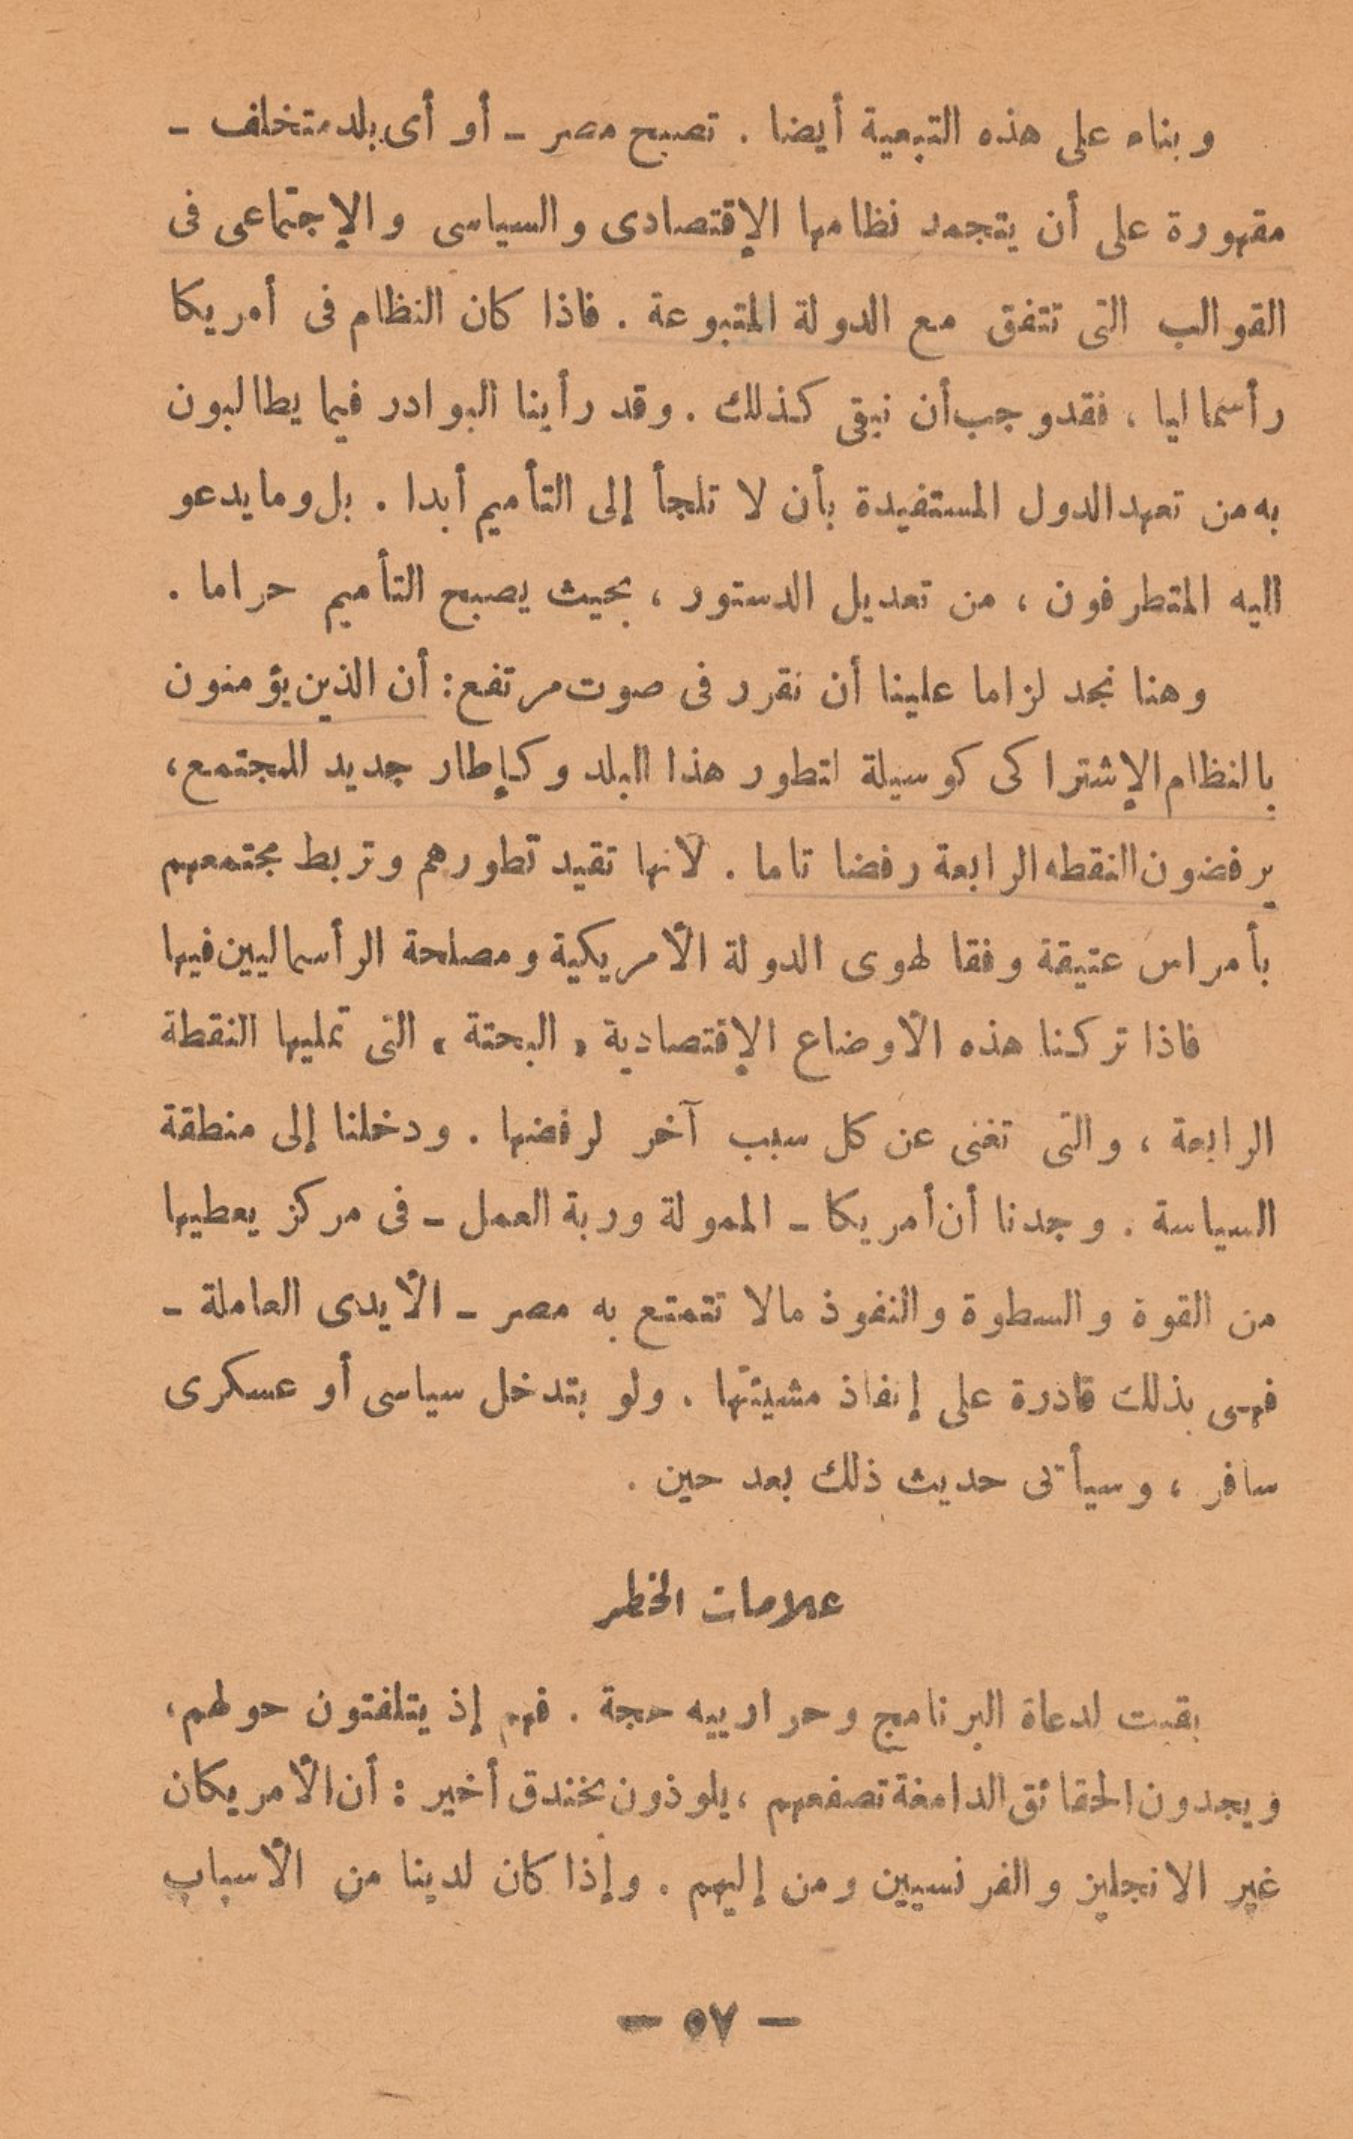 وبناء على هذه التبعية أيضا . تصبح مصر ــ أو أى بلد متخلف ــ
مقهورة على أن يتجمد نظامها الإقتصادى والسياسى والإجتماعى فى
القوالب التى تتفق مع الدولة المتبوعة . فاذا كان النظام فى أمريكا
رأسماليا ، فقد وجب أن نبقى كذلك . وقد رأينا البوادر فيما يطالبون
به من تعهد الدول المستفيدة بأن لا تلجأ إلى التأميم أبدا . بل وما يدعو
اليه المتطرفون ، من تعديل الدستور ، بحيث يصبح التأميم حراما .
وهنا نجد لزاما علينا أن نقرر فى صوت مرتفع : أن الذين يؤمنون
بالنظام الإشتراكى كوسيلة لتطور هذا البلد وكإطار جديد للمجتمع ،
يرفضون النقطه الرابعة رفضا تاما . لأنها تقيد تطورهم وتربط مجتمعهم
بأمراس عتيقة وفقا لهوى الدولة الأمريكية ومصلحة الرأسماليين فيها
فاذا تركنا هذه الأوضاع الإقتصادية « البحتة » التى تمليها النقطة
الرابعة ، والتى تغنى عن كل سبب آخر لرفضها . ودخلنا إلى منطقة
السياسة . وجدنا أن أمريكا ــ الممولة وربة العمل ــ فى مركز يعطيها
من القوة والسطوة والنفوذ مالا تتمتع به مصر ــ الأيدى العاملة ــ
فهى بذلك قادرة على إنفاذ مشيئتها . ولو بتدخل سياسى أو عسكرى
سافر ، وسيأتى حديث ذلك بعد حين .
علامات الخطر
بقيت لدعاة البرنامج وحرارييه حجة . فهم إذ يتلفتون حولهم ،
ويجدون الحقائق الدامغة تصفعهم ، يلوذون بخندق أخير : أن الأمريكان
غير الانجليز والفرنسيين ومن إليهم . وإذا كان لدينا من الأسباب
— ٥٧ —